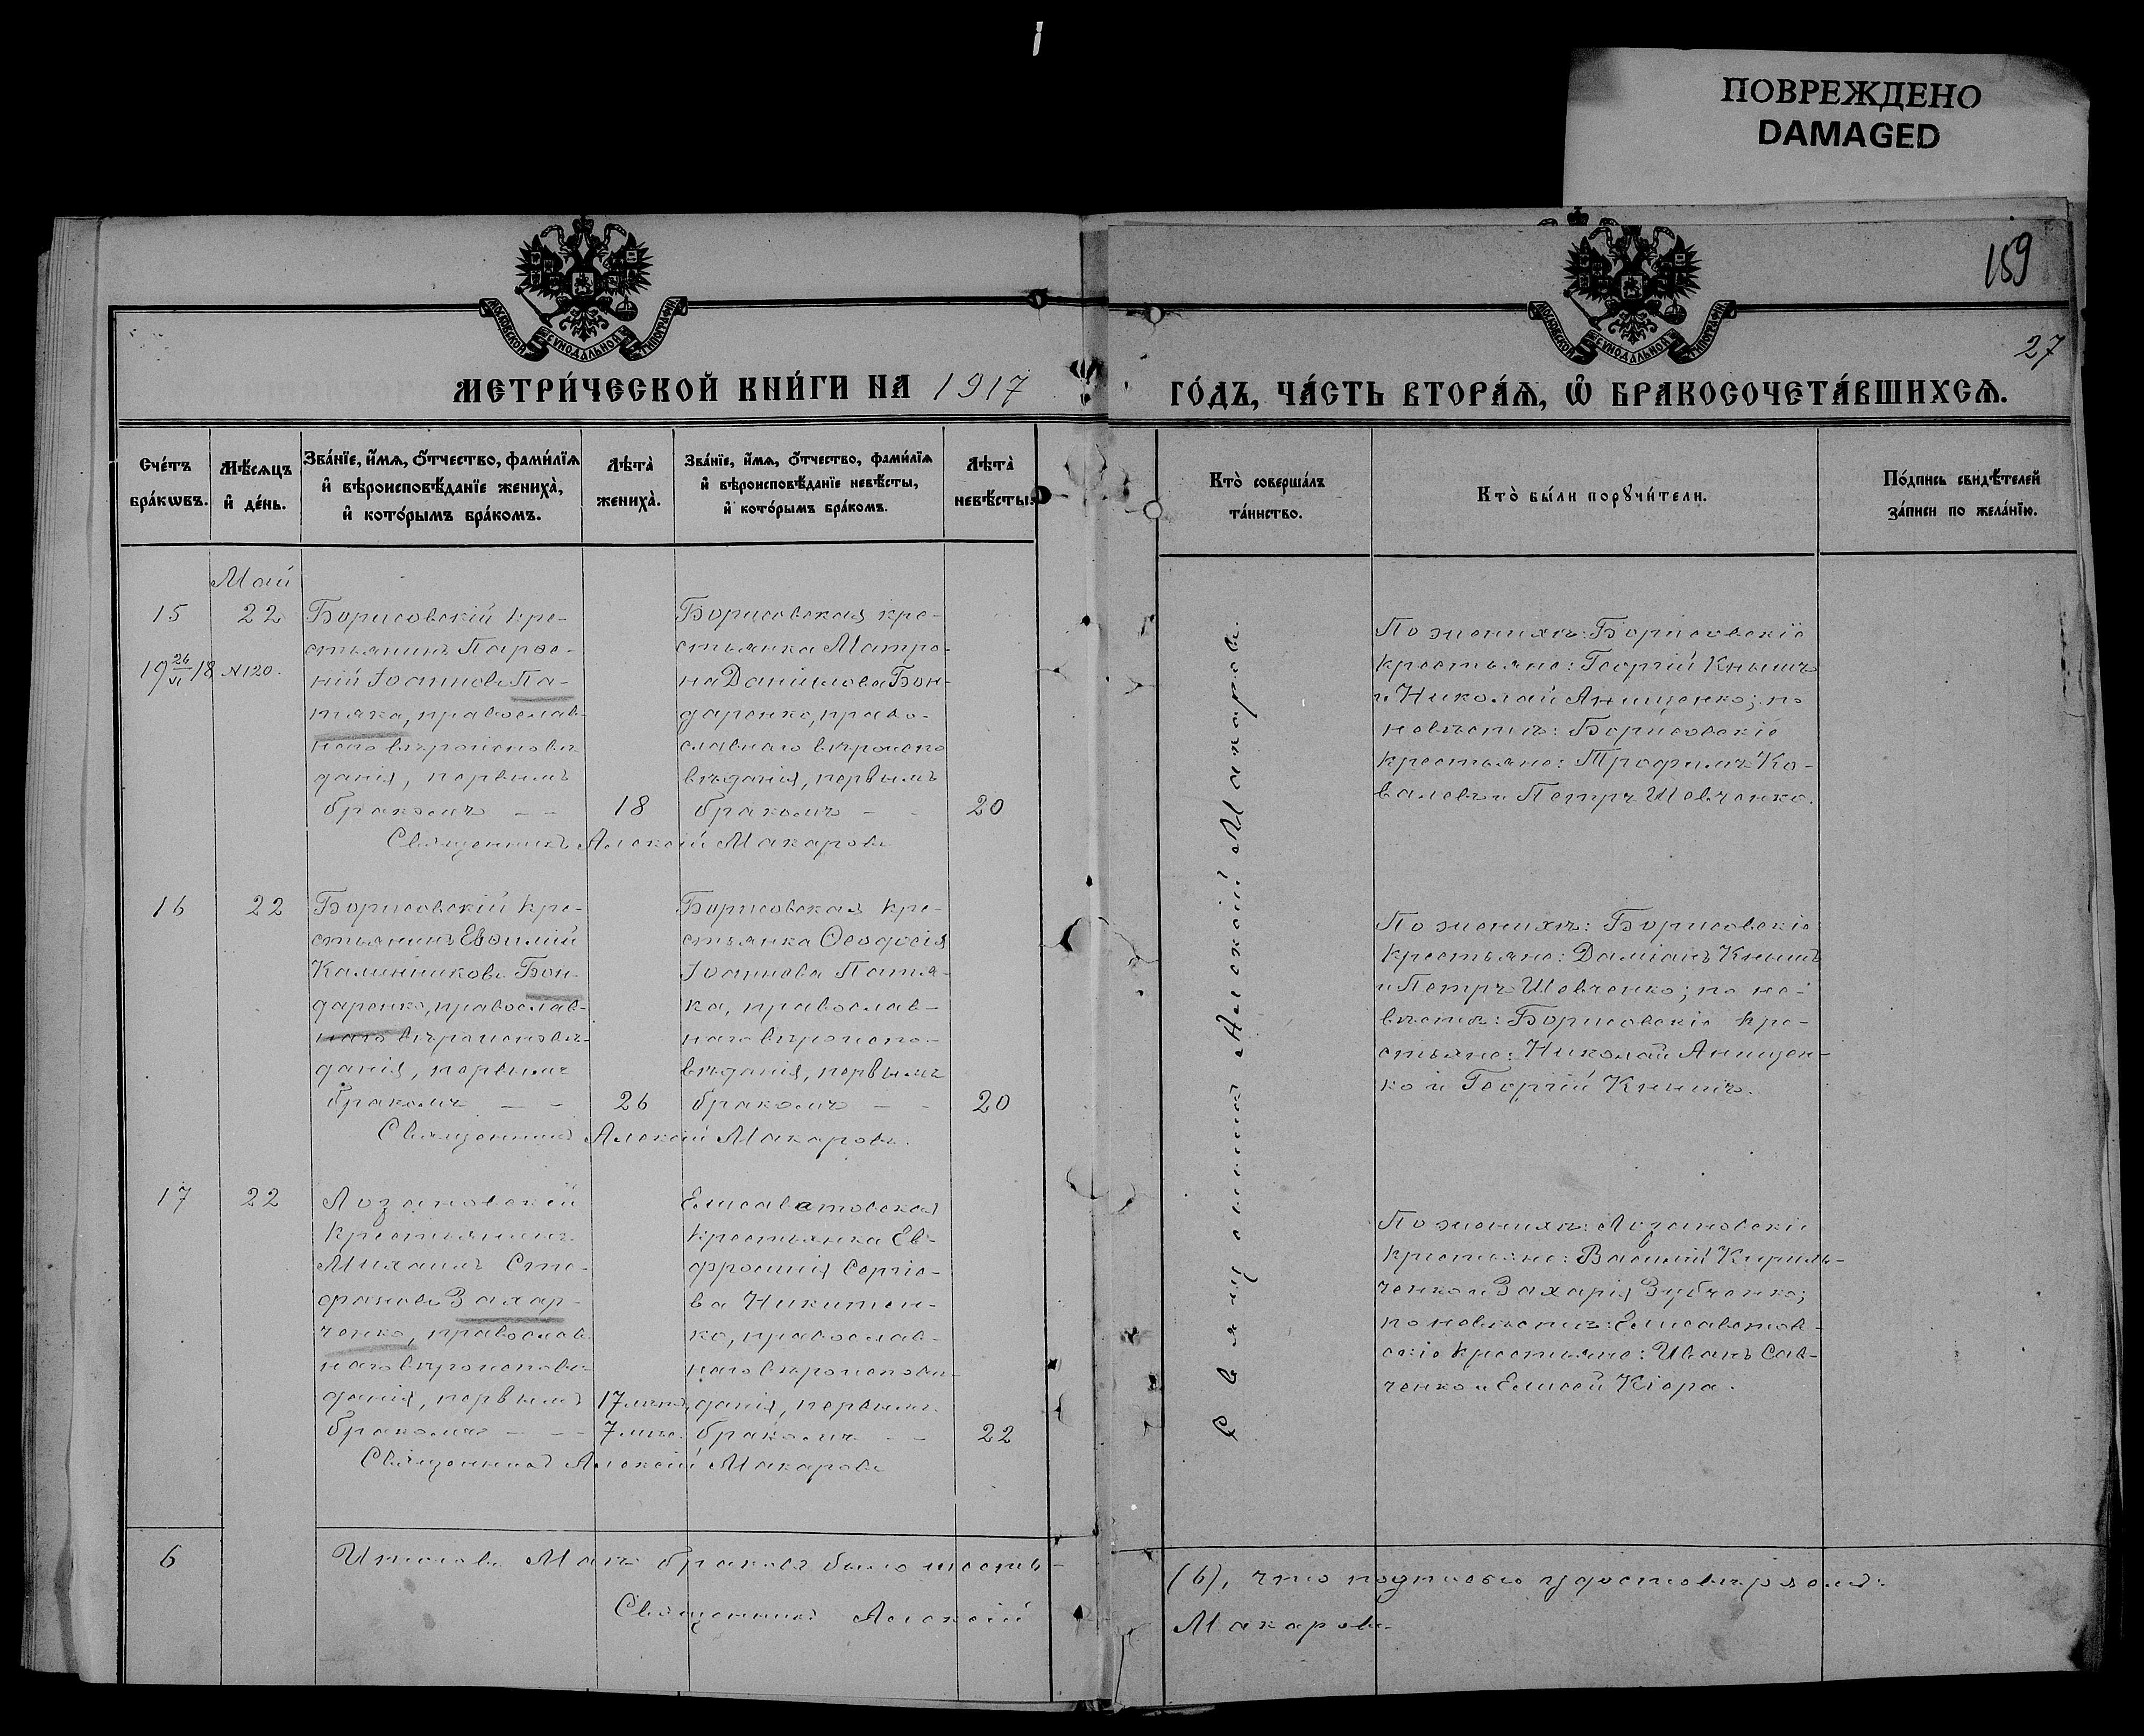 ПОВРЕЖДЕНО
DAMAGED
МОСКОВСКОЙ СѴНОДАЛЬНОЙ ТИПОГРАФІИ
МОСКОВСКОЙ СѴНОДАЛЬНОЙ ТИПОГРАФІИ
159
27
МЕТРИ́ЧЕСКОЙ КНИ́ГИ НА 1917
ГО́ДЪ, ЧА́СТЬ ВТОРА́Ѧ, Ѡ҆ БРАКОСОЧЕТА́ВШИХСѦ.
Сче́тъ
бра́кѡвъ.
Мѣ́сѧцъ
и҆ де́нь.
Зва́нїе, и҆́мѧ, ѻ҆́тчество, фами́лїѧ
и҆ вѣроисповѣ́данїе жениха̀,
и҆ кото́рымъ бра́комъ.
Лѣта̀
жениха̀.
Зва́нїе, и҆́мѧ, ѻ҆́тчество, фами́лїѧ
и҆ вѣроисповѣ́данїе невѣ́сты,
и҆ кото́рымъ бра́комъ.
Лѣта̀
невѣ́сты.
Кто̀ соверша́лъ
та́инство.
Кто̀ бы́ли порꙋчи́тели.
По́дпись свидѣ́телей
за́писи по жела́нїю.
Май
15
22
19 26/VI 18 N120.
Борисовскій кре-
стьянинъ Парѳе-
ній Іоанновъ Па-
тяка, православ-
наго вѣроисповѣ-
данія, первымъ
бракомъ — —
18
Борисовская кре-
стьянка Матро-
на Даніилова Бон-
даренко, право-
славнаго вѣроиспо
вѣданія, первымъ
бракомъ — -
20
Священникъ Алексій Макаровъ
По женихѣ: Борисовскіе
крестьяне: Георгій Кнышъ
и Николай Анищенко; по
невѣстѣ: Борисовскіе
крестьяне: Трофимъ Ко-
валевъ и Петръ Шевченко.
16
22
Борисовскій кре-
стьянинъ Евѳимій
Калинниковъ Бон-
даренко, православ-
наго вѣроисповѣ-
данія, первымъ
бракомъ — -
26
Борисовская кре-
стьянка Ѳеодосія
Іоаннова Патя-
ка, православ-
наго вѣроиспо-
вѣданія, первымъ
бракомъ — -
20
Священникъ Алексій Макаровъ.
По женихѣ: Борисовскіе
крестьяне: Даміанъ Кнышъ
и Петръ Шевченко; по не-
вѣстѣ: Борисовскіе кре-
стьяне: Николай Анищен-
ко и Георгій Кнышъ.
17
22
Лозановскій
крестьянинъ
Михаилъ Сте-
фановъ Захар-
ченко, православ-
наго вѣроисповѣ-
данія, первымъ
бракомъ — - -
17 лѣтъ
7 мѣс.
Елисаветовская
крестьянка Ев-
фросинія Сергіе-
ва Никитен-
ко, православ-
наго вѣроисповѣ-
данія, первымъ
бракомъ — —
22
Священникъ Алексій Макаровъ
По женихѣ: Лозановскіе
крестьяне: Василій Кириль-
ченко и Захарія Зубченко;
по невѣстѣ: Елисаветов-
скіе крестьяне: Иванъ Сав-
ченко и Елисей Кіора.
Священникъ Алексій Макаровъ.
6
Итого въ Маѣ браковъ было шесть
(6), что подписью удостовѣряемъ:
Священникъ Алексій
Макаровъ